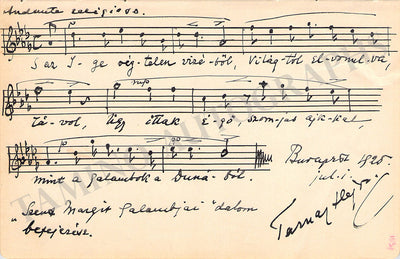 Andante religioso.
S az I-ge vég-telen vizé-ből, Világ-tól el-vonul-va,
Tá-vol, Úgy ittak é-gő, szom-jas ajk-kal,
mint a galambok a Duná-ból.
Budapest 1925.
jul. 1.
"Szent Margit Galambjai" dalom
befejezése.
TAMINO AUTOGRAPHS